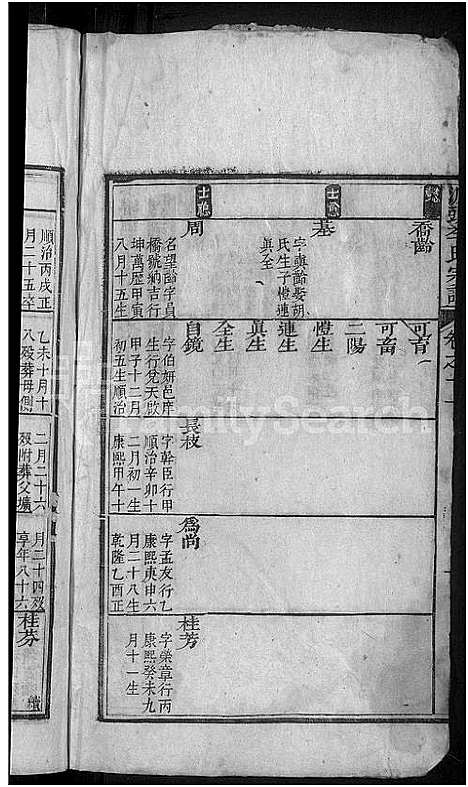 喬齡
士㥣
基
字眞齡娶胡
氏生子愷連
眞全
周
名望齡字員
橋號納吉行
坤萬歴甲寅
八月十五生
可畜
可畜
二陽
愷生
連生
眞生
全生
自鏡
字伯妍邑庠
生行兌天啟
甲子十二月
初五生順治
長枝
字幹臣行甲
順治辛卯十
二月初一生
康熙甲午十
爲尚
字孟友行乙
康熙庚申六
月二十八生
乾隆乙酉正
桂芳
字榮章行丙
康熙癸未九
月十一生
順治丙戌正
月二十五卒
乙未十月十
八歿葬母側
二月二十六
歿附葬父壙
月二十四歿
享年八十六
桂芬
FamilySearch